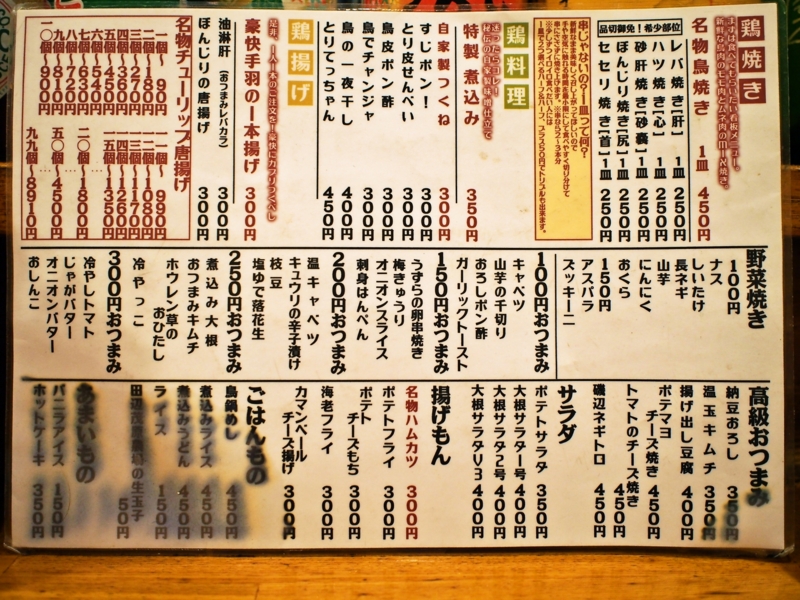 鶏焼き
まずは食べてもらいたい看板メニュー。
新鮮な鳥肉のモモ肉とムネ肉のMIX焼き。
名物鳥焼き 1皿 450円
品切御免!希少部位
レバ焼き[肝] 1皿 250円
ハツ焼き[心] 1皿 250円
砂肝焼き[砂嚢] 1皿 250円
ぼんじり焼き[尻] 1皿 250円
セセリ焼き[首] 1皿 250円
串じゃないの?一皿って何?
鶏料理
迷ったらコレ!
秘伝の自家製味噌仕立て
特製煮込み 350円
自家製つくね 300円
すじポン! 300円
とり皮せんべい 300円
鳥皮ポン酢 300円
鳥でチャンジャ 300円
鳥の一夜干し 400円
とりてっちゃん 450円
鶏揚げ
是非、一人一本のご注文を!豪快にカブリつくべし
豪快手羽の一本揚げ 300円
油淋肝(おつまみレバカラ) 300円
ぼんじりの唐揚げ 300円
名物チューリップ唐揚げ
一個〜90円
二個〜180円
三個〜270円
十一個〜990円
十二個〜1080円
十三個〜1170円
二〇個〜1800円
五〇個〜4500円
九九個〜8910円
野菜焼き
100円
ナス
しいたけ
長ネギ
山芋
にんにく
おくら
150円
アスパラ
ズッキーニ
100円おつまみ
キャベツ
山芋の千切り
おろしポン酢
ガーリックトースト
150円おつまみ
うずらの卵串焼き
梅きゅうり
オニオンスライス
刺身はんぺん
200円おつまみ
温キャベツ
キュウリの辛子漬け
枝豆
塩ゆで落花生
250円おつまみ
煮込み大根
おつまみキムチ
ホウレン草の
おひたし
冷やっこ
300円おつまみ
冷やしトマト
じゃがバター
オニオンバター
おしんこ
高級おつまみ
納豆おろし 350円
温玉キムチ 350円
揚げ出し豆腐 400円
ポテマヨ
チーズ焼き 450円
トマトのチーズ焼き 450円
磯辺ネギトロ 450円
サラダ
ポテトサラダ 350円
大根サラダ1号 400円
大根サラダ2号 400円
大根サラダV3 400円
揚げもん
名物ハムカツ 300円
ポテトフライ 300円
ポテト
チーズもち 300円
海老フライ 300円
カマンベール
チーズ揚げ 300円
ごはんもの
鳥鍋めし 450円
煮込みライス 450円
煮込みうどん 450円
ライス 150円
の生玉子 50円
あまいもの
バニラアイス 150円
ホットケーキ 350円